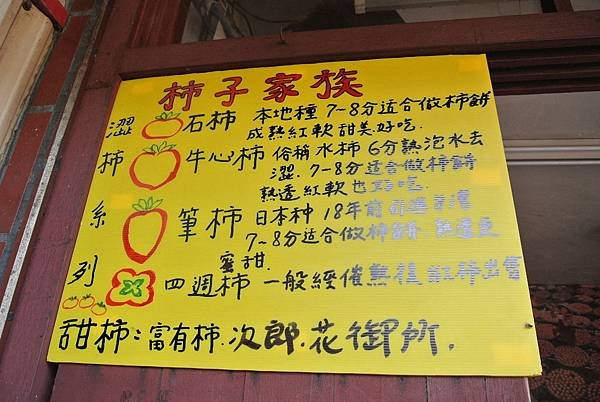 柿子家族
澀柿系列
石柿 本地種 7~8分适合做柿餅
成熟紅軟甜美好吃.
牛心柿 俗稱水柿 6分熟泡水去
澀. 7~8分适合做柿餅
熟透紅軟也好吃.
筆柿 日本种 18年前引進台灣
7~8分适合做柿餅. 熟透更
蜜甜.
四週柿 一般經催熟後紅柿出售
甜柿:富有柿.次郎.花御所.